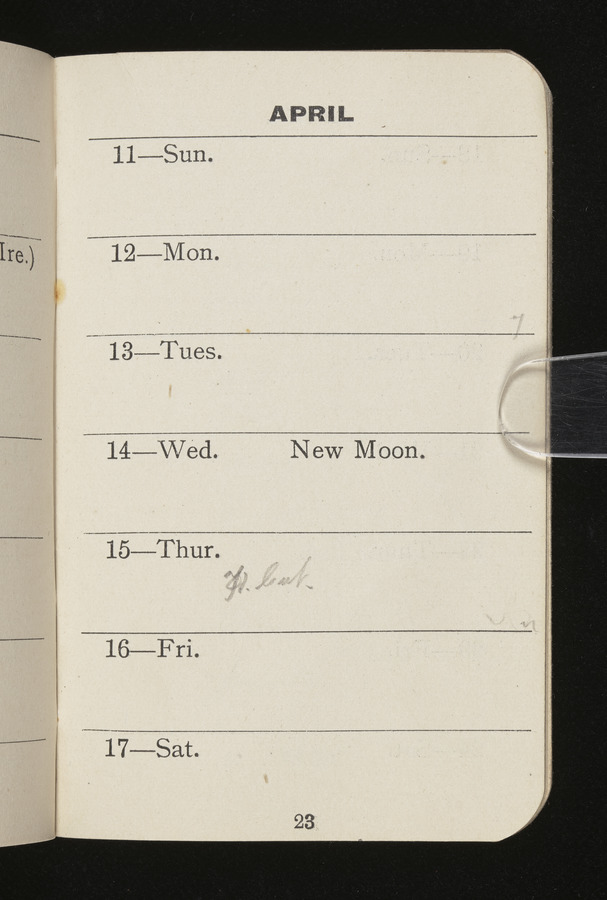 APRIL
11—Sun.
Ire.)
12—Mon.
7
13—Tues.
14—Wed. New Moon.
15—Thur.
16—Fri.
17—Sat.
23